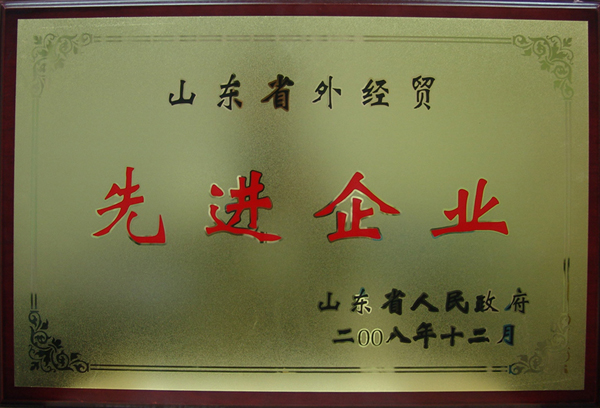 山东省外经贸
先进企业
山东省人民政府
二00八年十二月